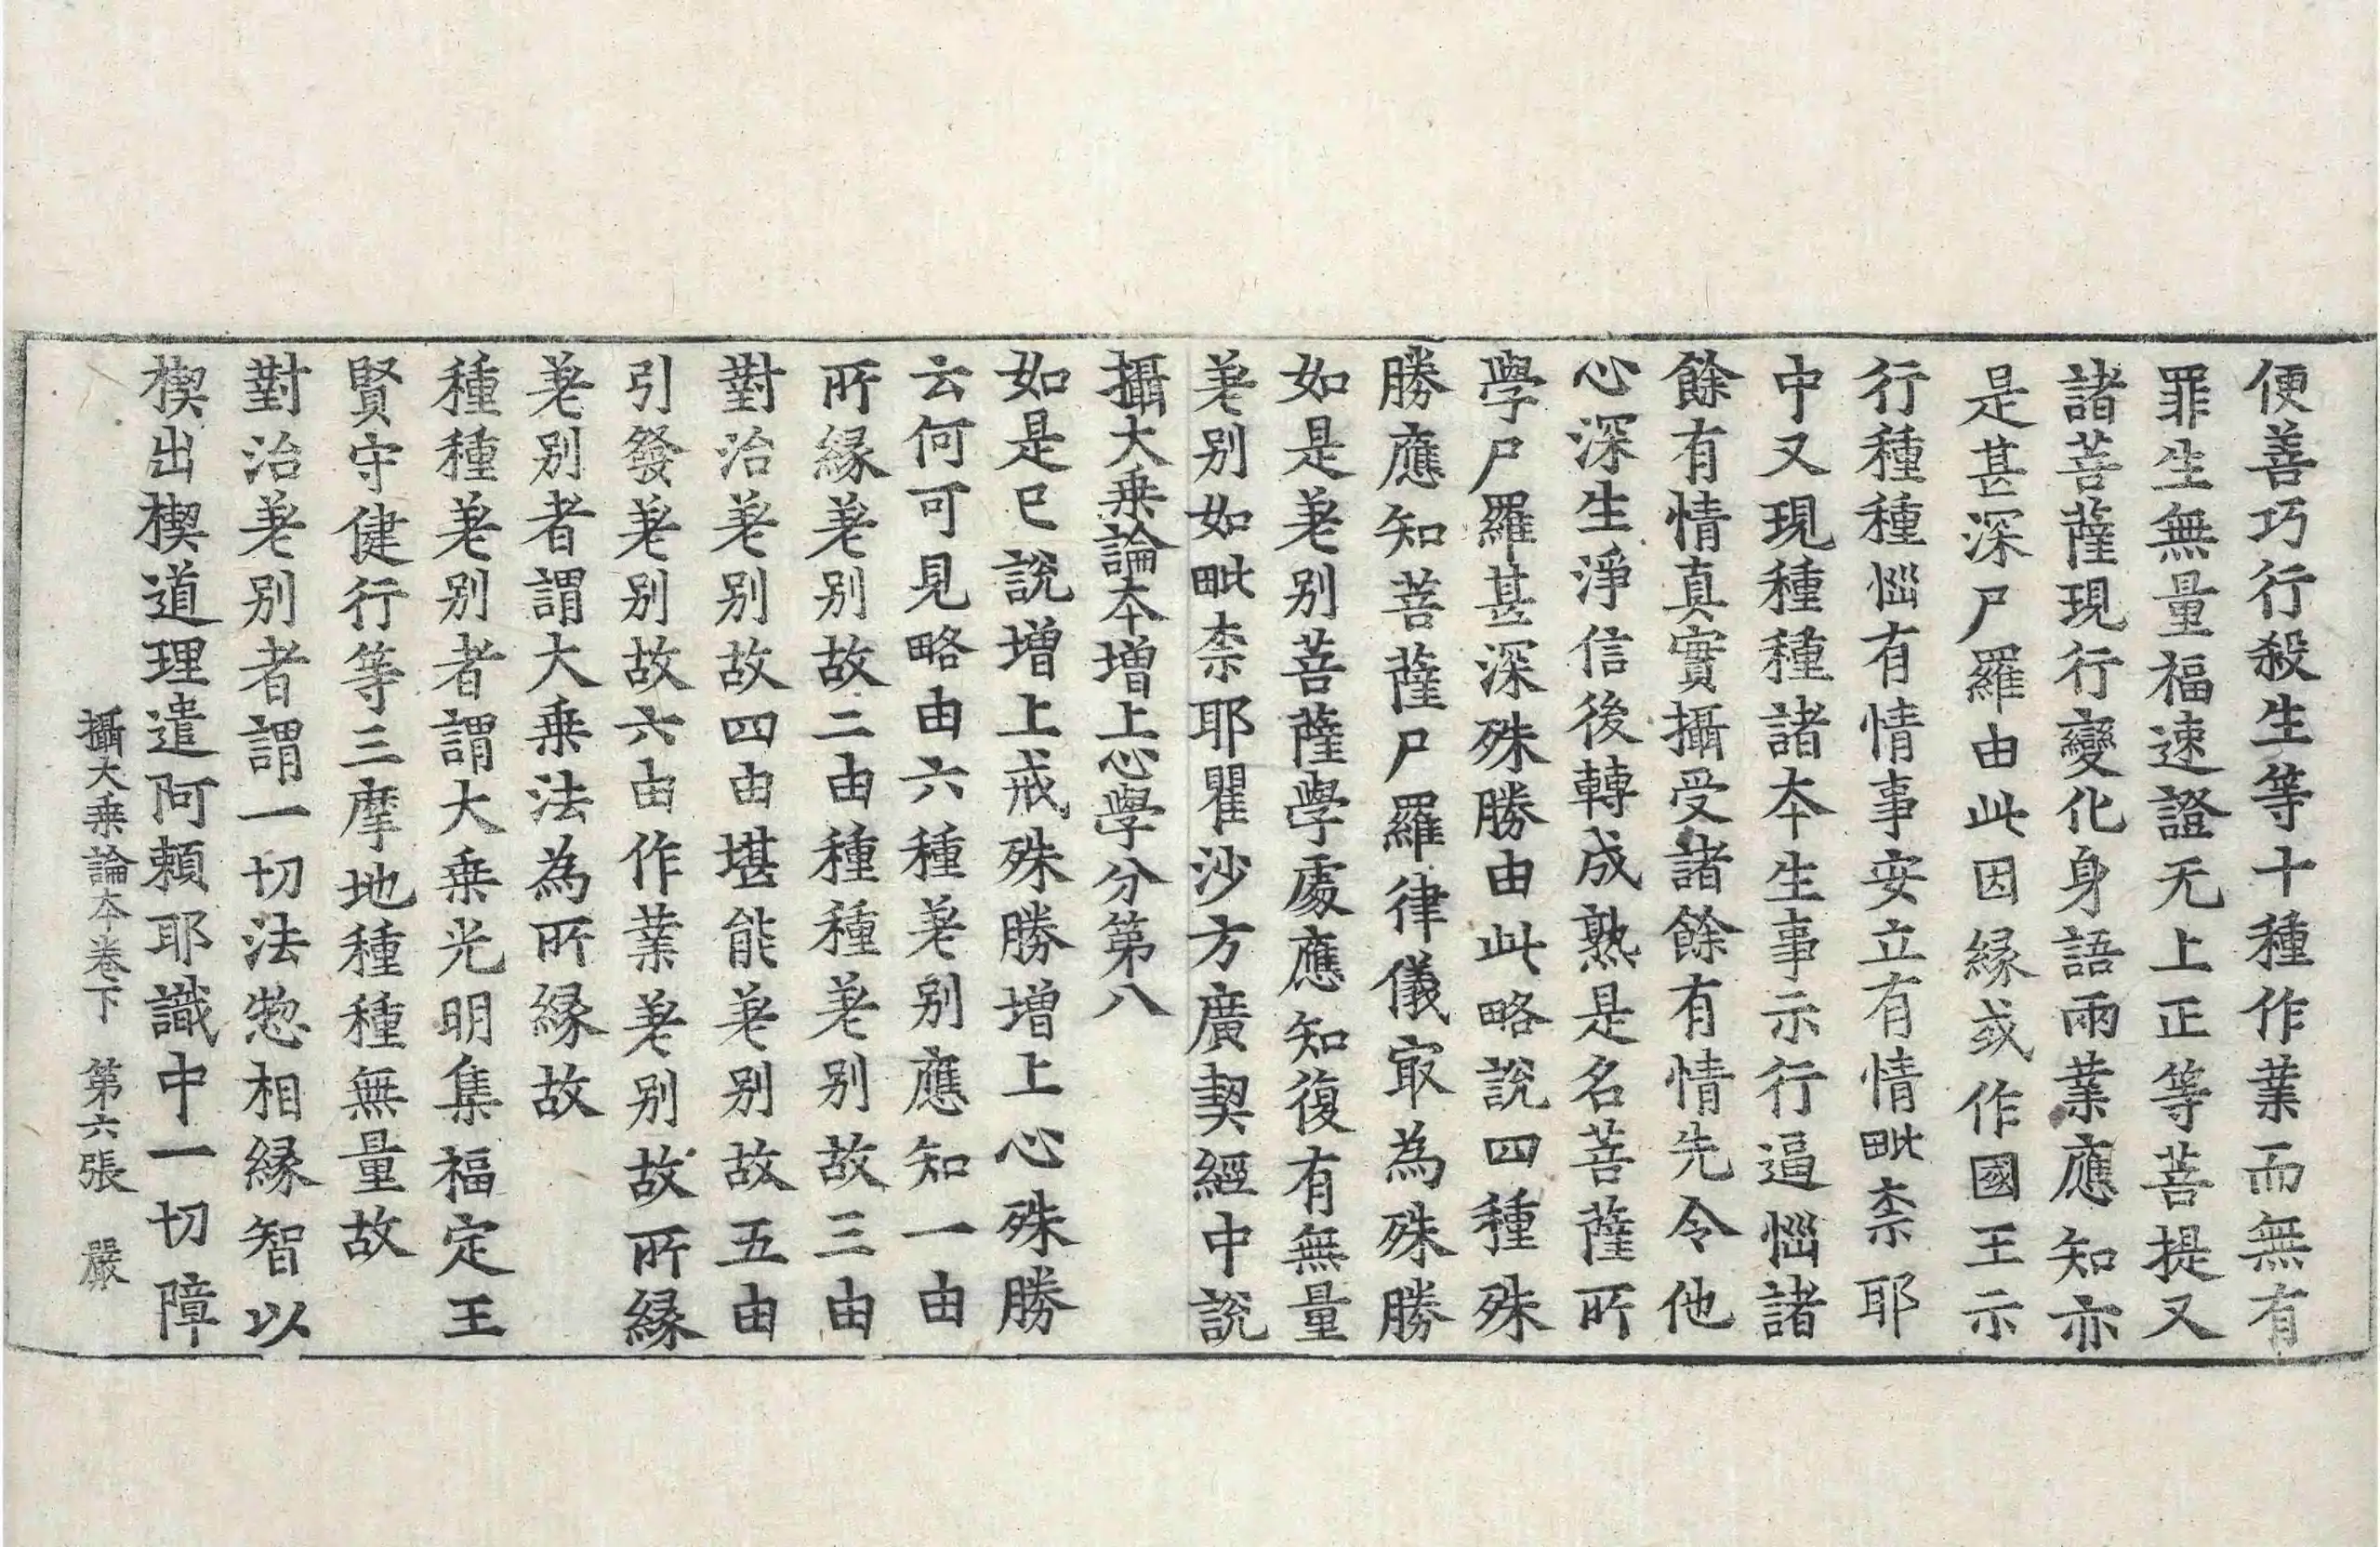 便善巧行殺生等十種作業而無有
罪生無量福速證无上正等菩提又
諸菩薩現行變化身語兩業應知亦
是甚深尸羅由此因緣或作國王示
行種種惱有情事安立有情毗柰耶
中又現種種諸本生事示行逼惱諸
餘有情真實攝受諸餘有情先令他
心深生淨信後轉成熟是名菩薩所
學尸羅甚深殊勝由此略說四種殊
勝應知菩薩尸羅律儀冣為殊勝
如是差别菩薩學處應知復有無量
差别如毗柰耶瞿沙方廣契經中說
攝大乗論本增上心學分第八
如是已說增上戒殊勝增上心殊勝
云何可見略由六種差别應知一由
所緣差别故二由種種差别故三由
對治差别故四由堪能差别故五由
引發差别故六由作業差别故所緣
差别者謂大乗法為所緣故
種種差别者謂大乗光明集福定王
賢守健行等三摩地種種無量故
對治差别者謂一切法惣相緣智以
楔出楔道理遣阿賴耶識中一切障
攝大乗論本卷下　第六張　嚴